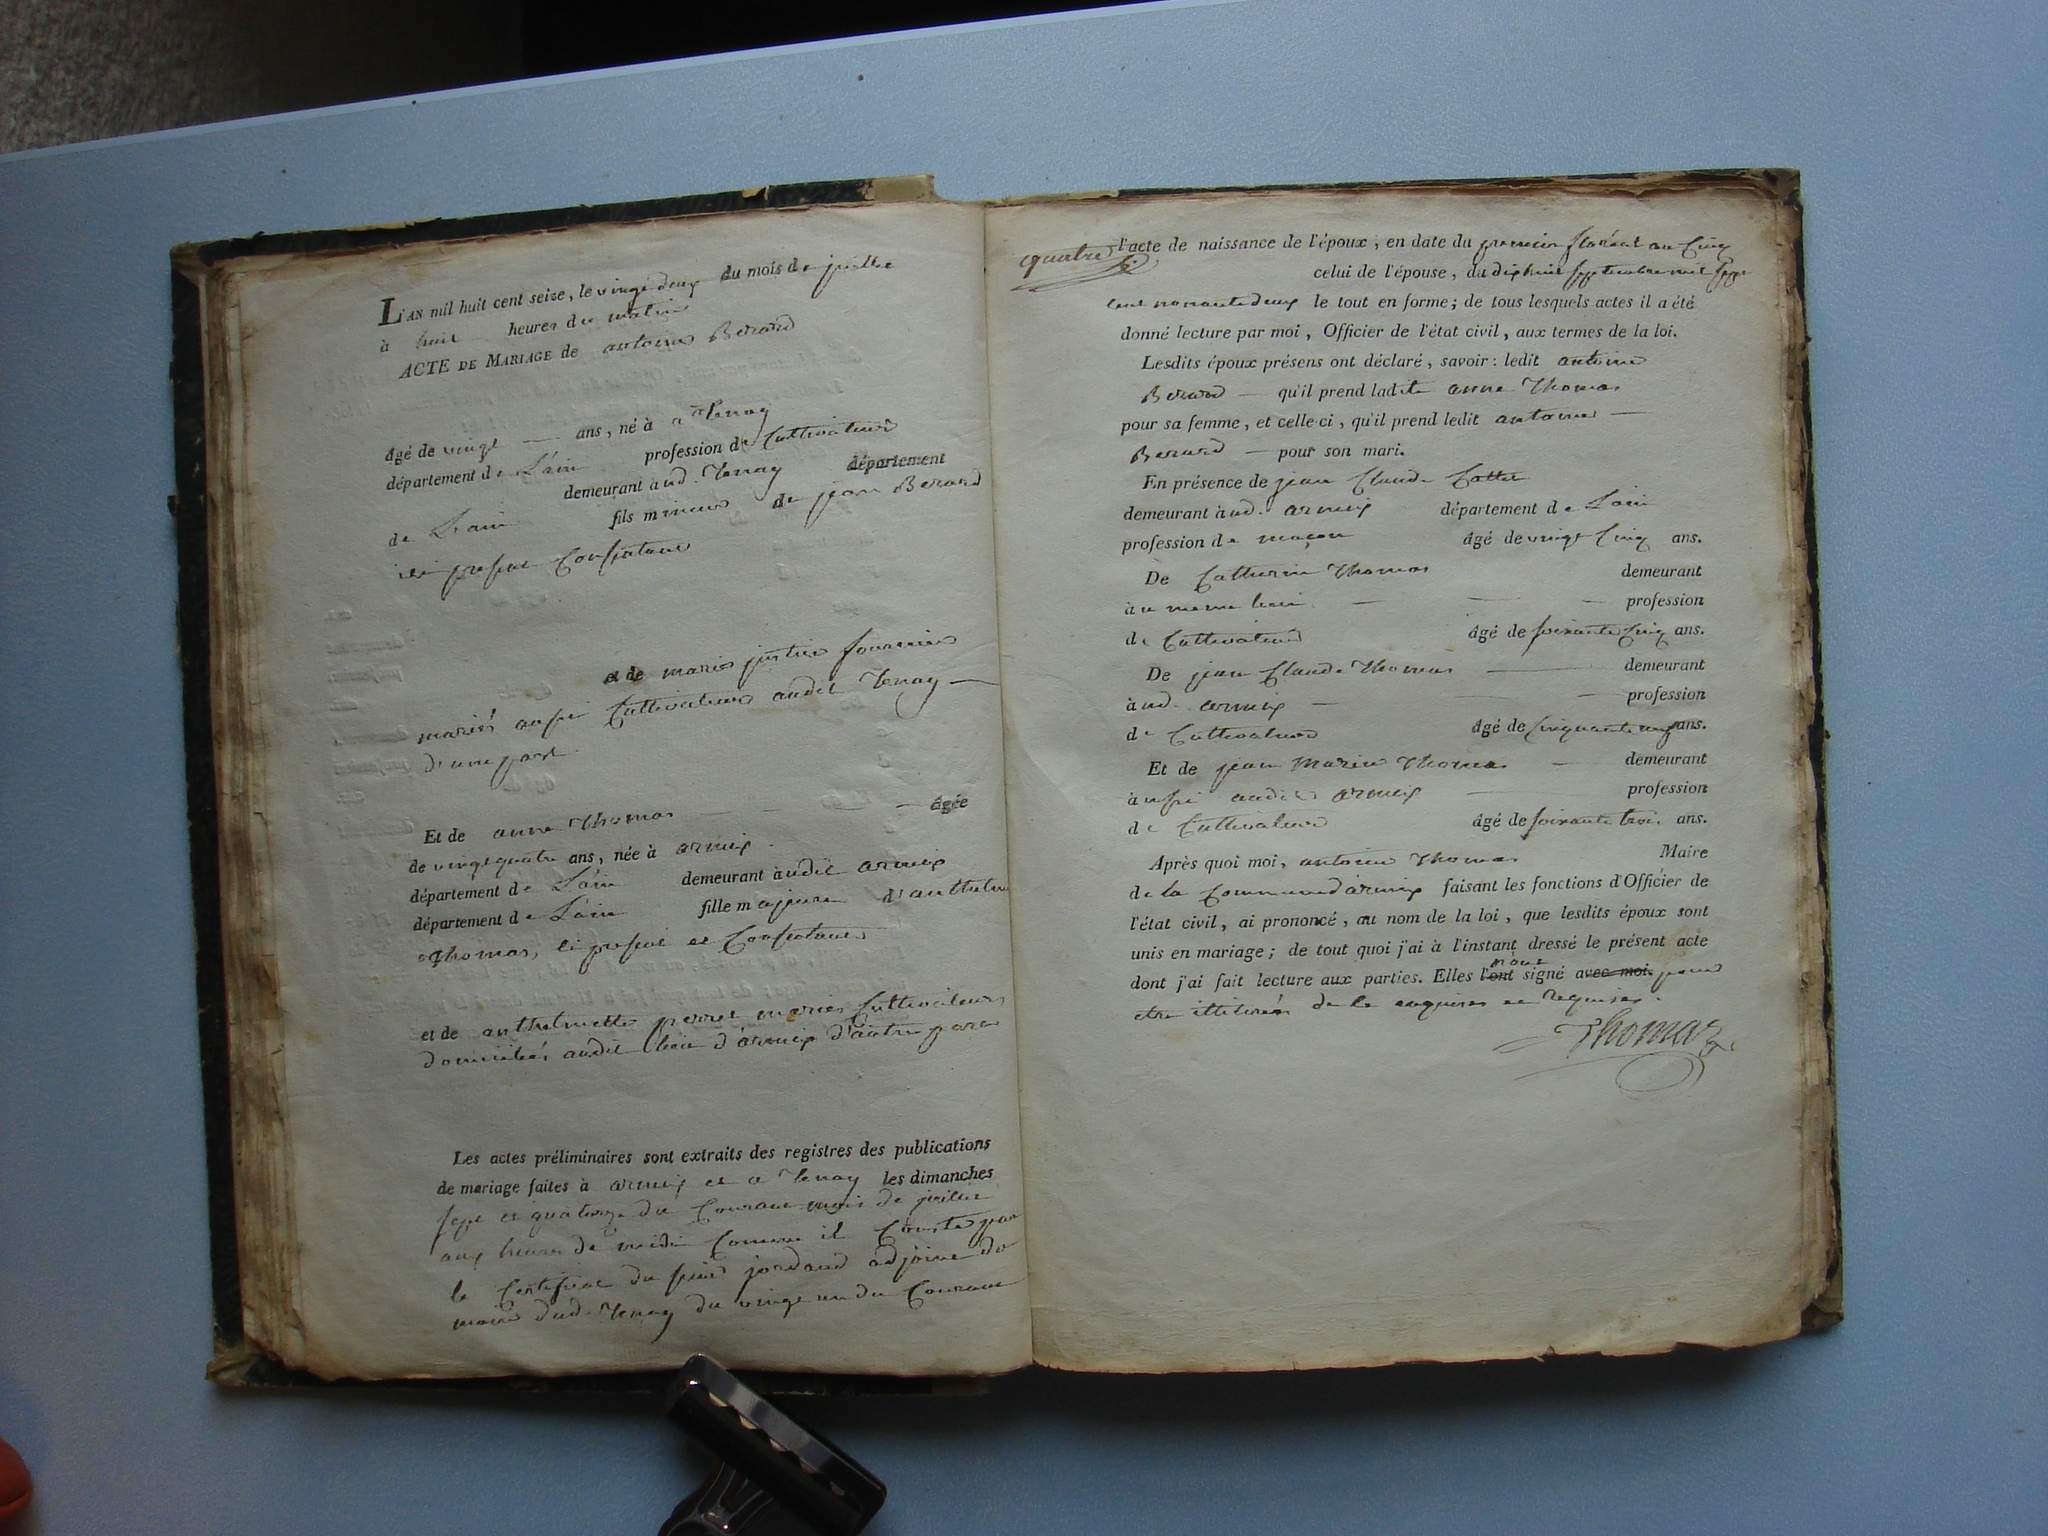 L'AN mil huit cent seize, le vingt deux du mois de juillet
à huit heures du matin
ACTE DE MARIAGE de antoine Berard
âgé de vingt — ans, né à a Tenay
département de L'ain profession de Cultivateur
demeurant aud. Tenay département
de L'ain fils mineur de jean Berard
ici present Consentant
et de marie justine fournier
mariés aussi Cultivateurs audit Tenay —
d'une part
Et de anne Thomas — — âgée
de vingt quatre ans, née à armix
département de L'ain demeurant audit armix
département de L'ain fille majeure d'anthelme
Thomas, ci present et Consentant
et de anthelmette perret mariés Cultivateurs
domiciliés audit lieu d'armix d'autre part
Les actes préliminaires sont extraits des registres des publications
de mariage faites à armix et a Tenay les dimanches
sept et quatorze du Courant mois de juillet
aux heures de midi Comme il Conste par
le Certificat du sieur jordand adjoint du
maire dud. Tenay du vingt un du Courant
quatre
l'acte de naissance de l'époux, en date du premier floréal an Cinq
celui de l'épouse, du dix huit septembre mil sept
cent nonante deux le tout en forme; de tous lesquels actes il a été
donné lecture par moi, Officier de l'état civil, aux termes de la loi.
Lesdits époux présens ont déclaré, savoir: ledit antoine
Berard — qu'il prend ladite anne Thomas
pour sa femme, et celle-ci, qu'il prend ledit antoine —
Berard — pour son mari.
En présence de jean Claude Cottet
demeurant à ud. armix département de L'ain
profession de maçon âgé de vingt Cinq ans.
De Catherin Thomas demeurant
à u meme lieu — — — profession
de Cultivateur âgé de soixante Cinq ans.
De jean Claude Thomas — demeurant
à ud. armix — — profession
de Cultivateur âgé de Cinquante neuf ans.
Et de jean Marie Thomas — demeurant
à ussi audit armix — profession
de Cultivateur âgé de soixante trois ans.
Après quoi moi, antoine Thomas Maire
de la Commune d'armix faisant les fonctions d'Officier de
l'état civil, ai prononcé, au nom de la loi, que lesdits époux sont
unis en mariage; de tout quoi j'ai à l'instant dressé le présent acte
dont j'ai fait lecture aux parties. Elles l'ont n'ont signé avec moi. pour
etre illitérés de ce enquises et requises.
Thomas